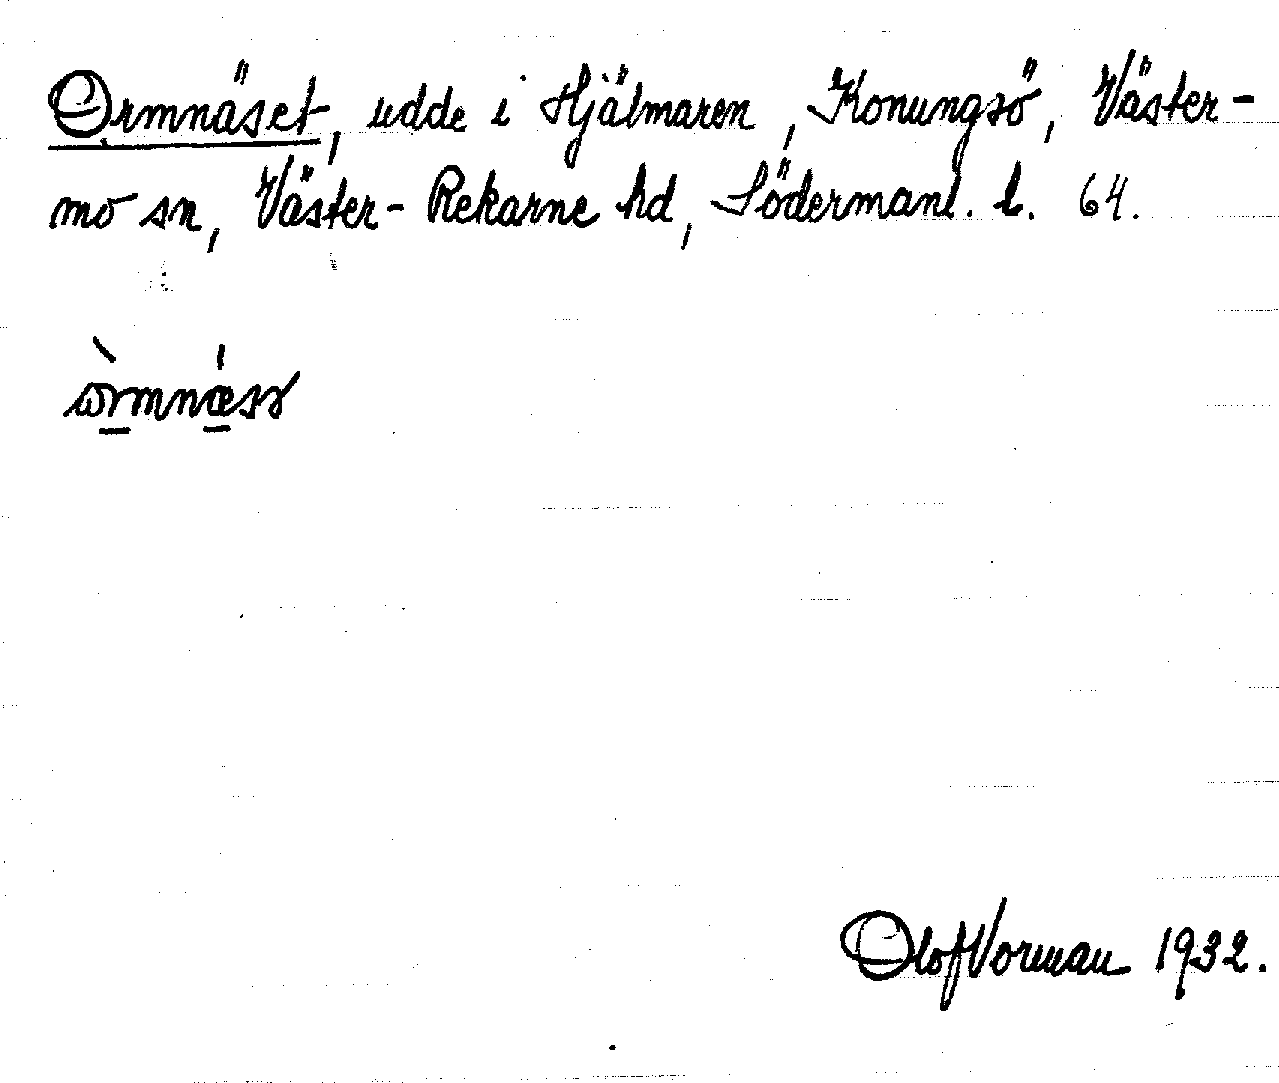 Ormnäset, udde i Hjälmaren, Konungsö, Väster-
mo sn, Väster-Rekarne hd, Södermanl. l. 64.
Olof Vorman 1932.